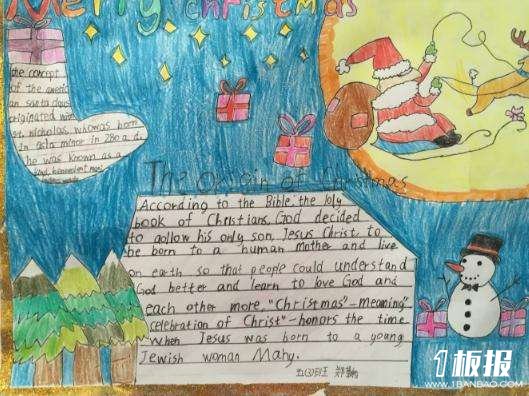 Merry christmas
the concept
of the american
santa claus
originated with
st. nicholas, who was born
in asia minor in 280 a.d.
he was known as a
kind, benevolent man
The origin of Christmas
According to the Bible, the loly
book of Christians, God decided
to aollow his only son, Jesus Christ, to
be born to a human mother and live
on earth so that people could understand
God better and learn to love God and
each other more, "Christmas"-meaning"
celebration of Christ"-honors the time
when Jesus was born to a young
Jewish woman Mary.
五(3)班
1板报
WWW.1BANBAO.COM